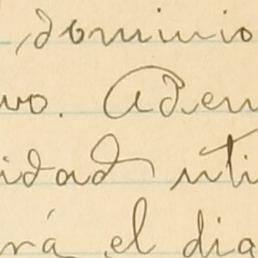 , dominio
vo. Adem
idad uti
rá el dia